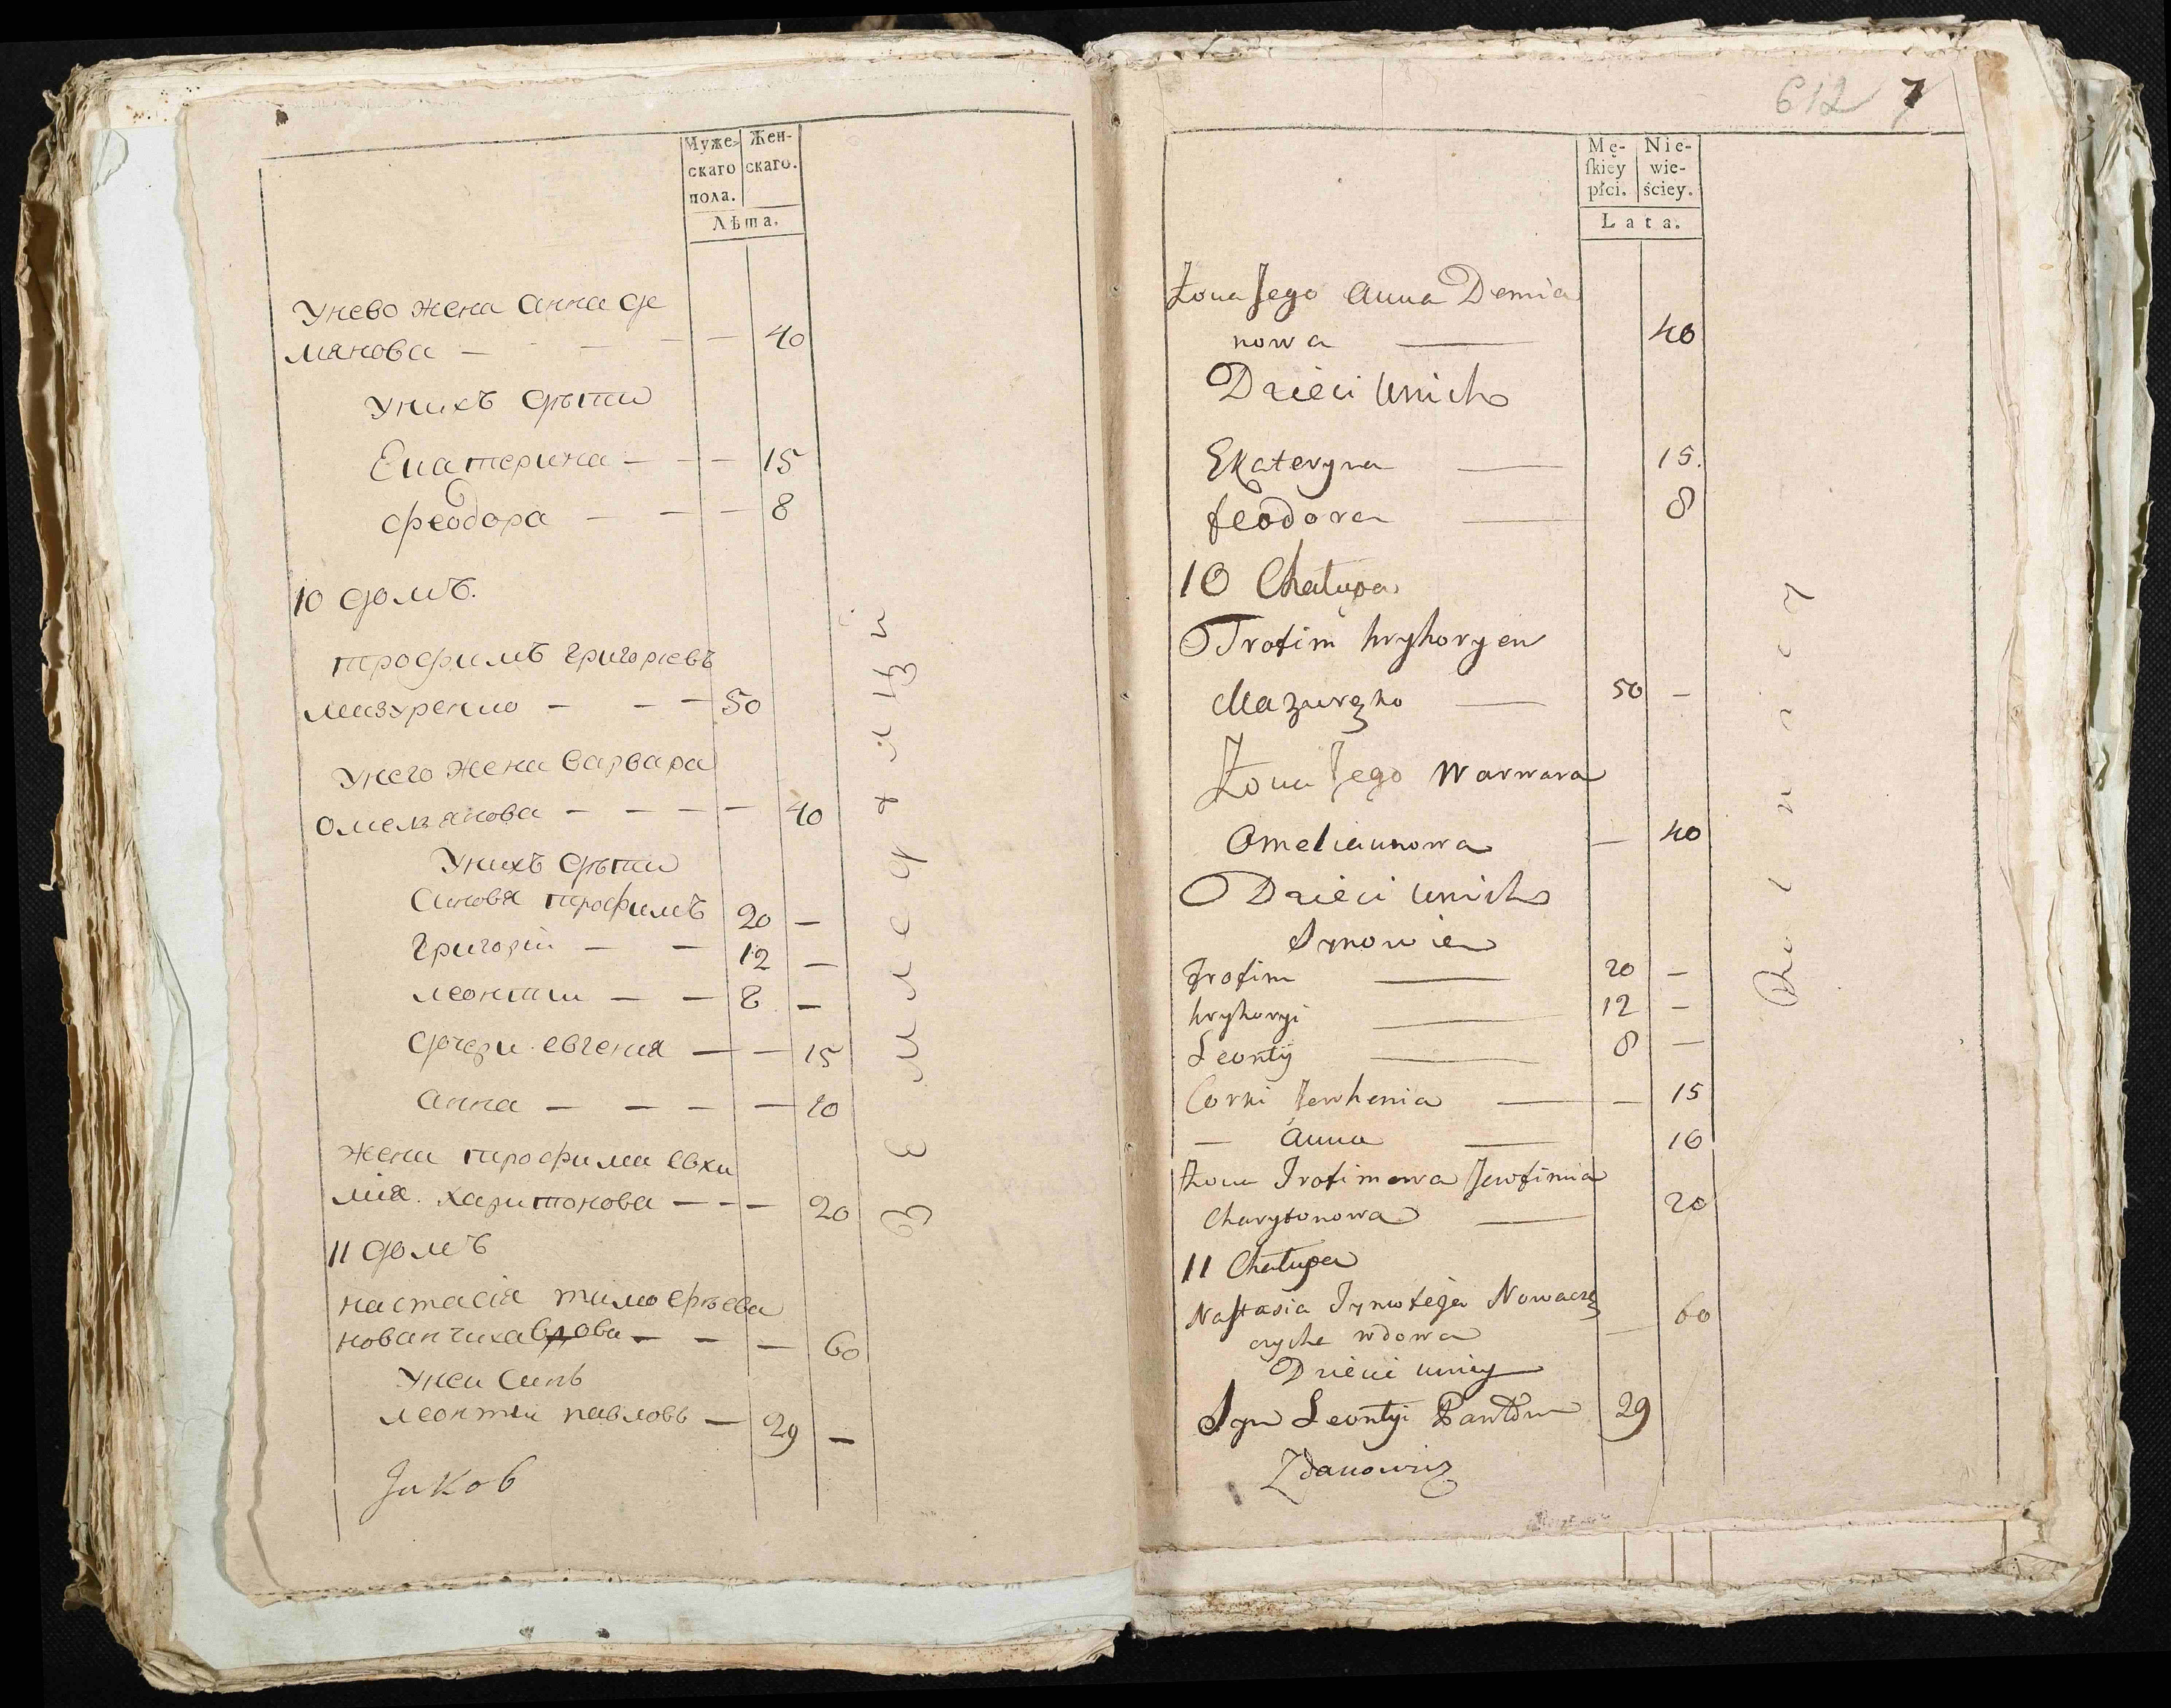 Муже-
скаго
пола.
Жен-
скаго.
Лѣта.
Унево жена анна де
мянова — 40
Унихъ дѣти
Екатерина — 15
феодора — 8
10 домъ.
трофимъ григоріевъ
мазуренко — 50
Унего жена варвара
омельянова — 40
Унихъ дѣти
Синовя трофимъ 20 —
григорій — 12 —
леонтии — 8 —
дочери евгения — 15
анна — 10
жена трофима евхи
мія харитонова — 20
11 домъ
настасія тимофѣева
новатчиха вдова — 60
Унеи Синъ
леонтии павловъ — 29 —
Jакоb
Земледѣлцы
612 7
Mę-
ſkiéy
płci.
Nie-
wie-
ściey.
Lata.
Żona Jego Anna Demia
nowa — 40
Dzieci Unich
Ekateryna — 15.
feodora — 8
10 Chałupa
Trofim hryhoryew
Mazuręko — 50 —
Żona Jego Warwara
Omelianowa — 40
Dzieci Unich
Synowie
Trofim — 20 —
hryhoryi — 12 —
Leontÿ — 8 —
Corki Jewhenia — 15
— Anna — 10
Żona Trofimowa Jewfimia
Charytonowa — 20
11 Chałupa
Naſtasia Tymofeja
wdowa — 60
Dzieci uniey
Syn Leontyi 29
Zdanowicz
Rolnicy